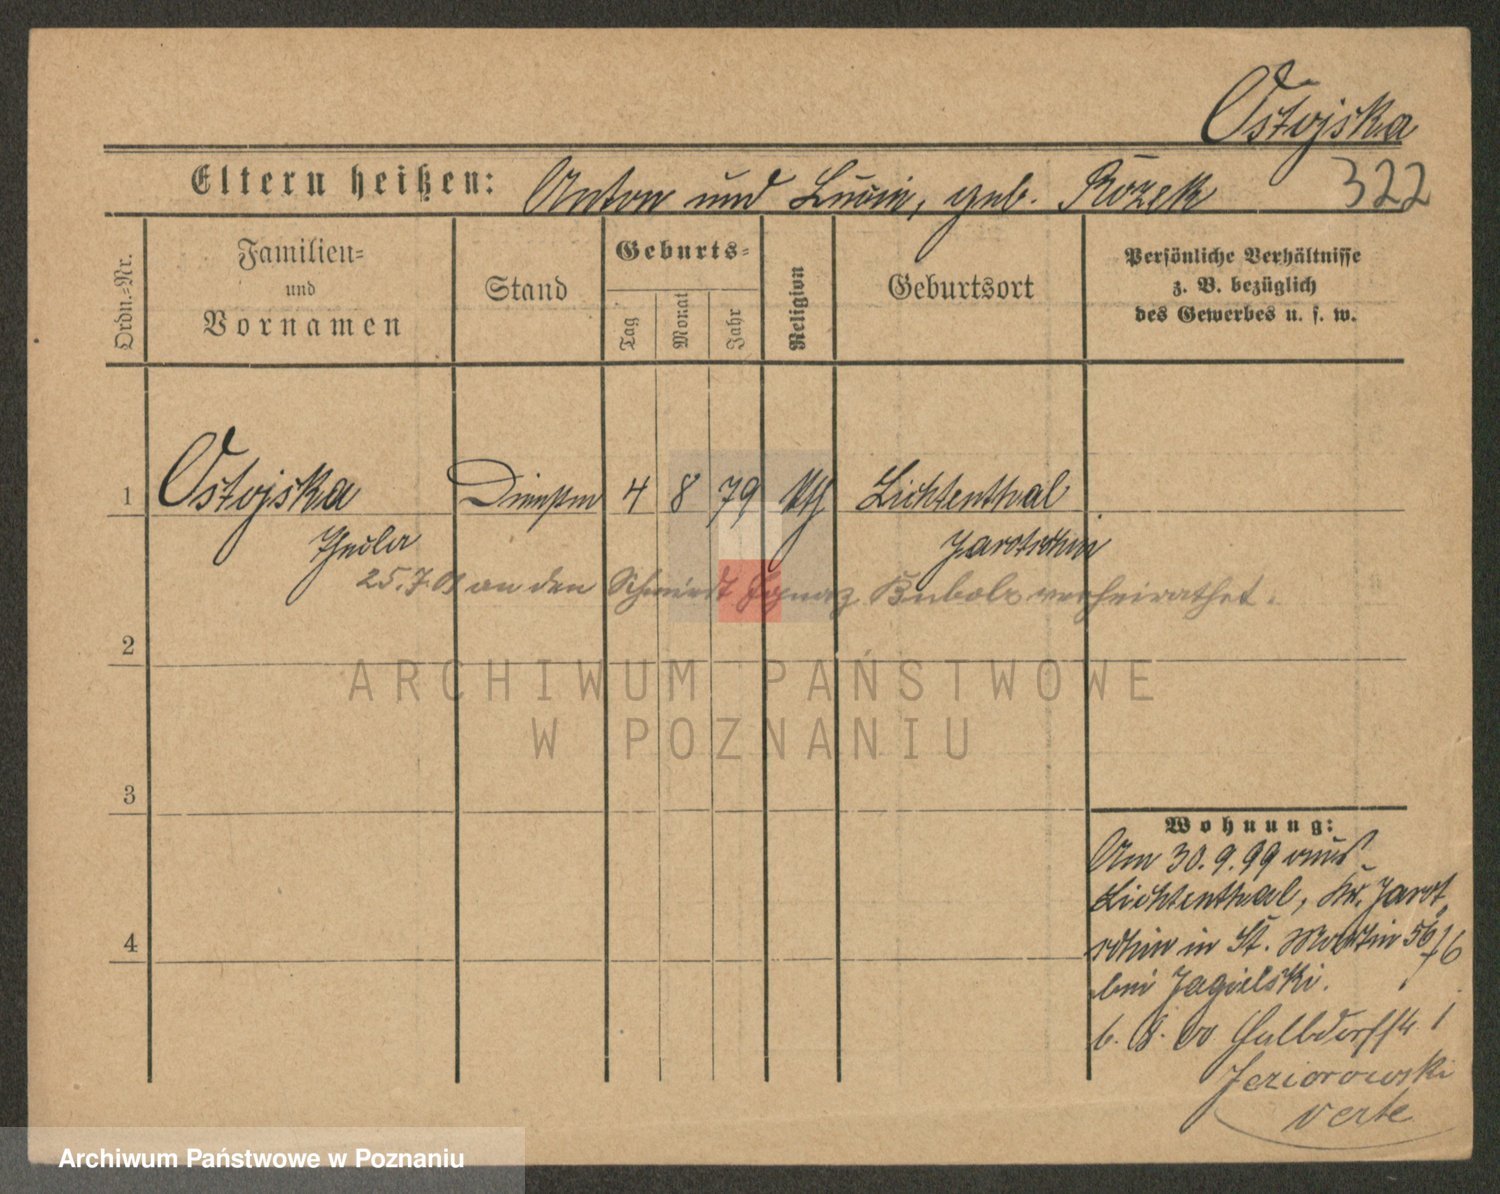 Ostojska
322
Eltern heißen: Anton und Lucie, geb. Rożek
Ordn.-Nr.
Familien-
und
Vornamen
Stand
Geburts-
Tag
Monat
Jahr
Religion
Geburtsort
Persönliche Verhältnisse
z. B. bezüglich
des Gewerbes u. s. w.
1 Ostojska 4 8 79 kth Lichtenthal
Thecla Jarotschin
25.7.01 an den Schmidt Ignaz verheirathet.
2
3
4
Wohnung:
Am 30.9.99 aus
Lichtenthal, Kr. Jarot
schin in St. Martin 56/76
bei Jagielski.
6. 8. 00 Halbdorfstr 1
Jeziorowski
verte
ARCHIWUM PAŃSTWOWE
W POZNANIU
Archiwum Państwowe w Poznaniu